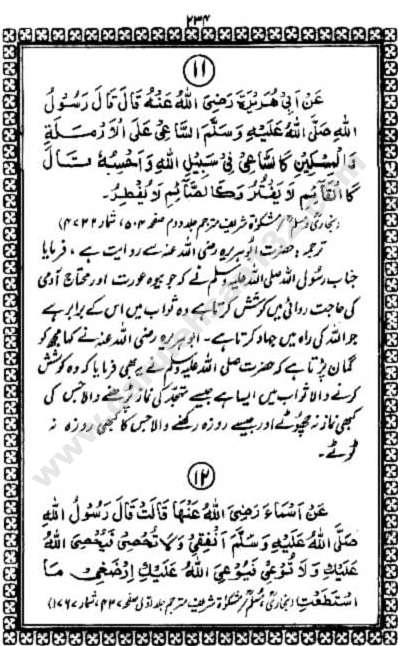 ۲۳۴
۱۱
عَنْ اَبِيْ هُرَيْرَةَ رَضِيَ اللهُ عَنْهُ قَالَ قَالَ رَسُوْلُ
اللهِ صَلَّى اللهُ عَلَيْهِ وَسَلَّمَ السَّاعِيْ عَلَى الْاَرْمِلَةِ
وَالْمِسْكِيْنِ كَالسَّاعِيْ فِيْ سَبِيْلِ اللهِ وَاَحْسِبُهٗ قَالَ
كَالْقَائِمِ لَا يَفْتُرُ وَكَالصَّائِمِ لَا يُفْطِرُ۔
(بخاری، مسلم/مشکوٰۃ شریف مترجم جلد دوم صفحہ ۵۰۴، شمار ۴۷۳۲)
ترجمہ: حضرت ابوہریرہ رضی اللہ عنہ سے روایت ہے، فرمایا
جناب رسول اللہ صلی اللہ علیہ وسلم نے کہ جو بیوہ عورت اور محتاج آدمی
کی حاجت روائی میں کوشش کرتا ہے وہ ثواب میں اس کے برابر ہے
جو اللہ کی راہ میں جہاد کرتا ہے۔ ابوہریرہ رضی اللہ عنہ نے کہا مجھ کو
گمان پڑتا ہے کہ حضرت صلی اللہ علیہ وسلم نے یہ بھی فرمایا کہ وہ کوشش
کرنے والا ثواب میں ایسا ہے جیسے تہجد کی نماز پڑھنے والا جس کی
کبھی نماز نہ چھوٹے اور جیسے روزہ رکھنے والا جس کا کبھی روزہ نہ
ٹوٹے۔
۱۲
عَنْ اَسْمَاءَ رَضِيَ اللهُ عَنْهَا قَالَتْ قَالَ رَسُوْلُ اللهِ
صَلَّى اللهُ عَلَيْهِ وَسَلَّمَ اَنْفِقِيْ وَلَا تُحْصِيْ فَيُحْصِيَ اللهُ
عَلَيْكِ وَلَا تُوْعِيْ فَيُوْعِيَ اللهُ عَلَيْكِ اِرْضَخِيْ مَا
اسْتَطَعْتِ (بخاری، مسلم/مشکوٰۃ شریف مترجم جلد اوّل صفحہ ۴۳۷، شمار ۱۷۶۷)